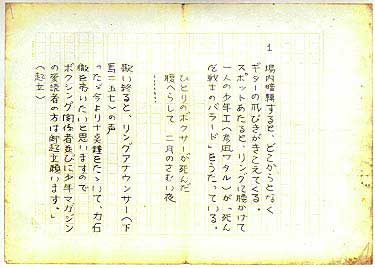 1
場内暗転すると、どこからとなく
ギターの爪びきがきこえてくる。
スポットあたると、リングに腰かけて
一人の少年工(ワタル)が、「死ん
だ戦士のバラード」をうたっている。
ひとりのボクサーが死んだ
腹へらして 二月のさむい夜
歌い終ると、リングアナウンサー(下
馬二五七)の声
「ただ今より十点鐘をたゝいて、力石
徹を弔いたいと思いますので
ボクシング関係者並びに少年マガジン
の愛読者の方は御起立願います。」
(起立)